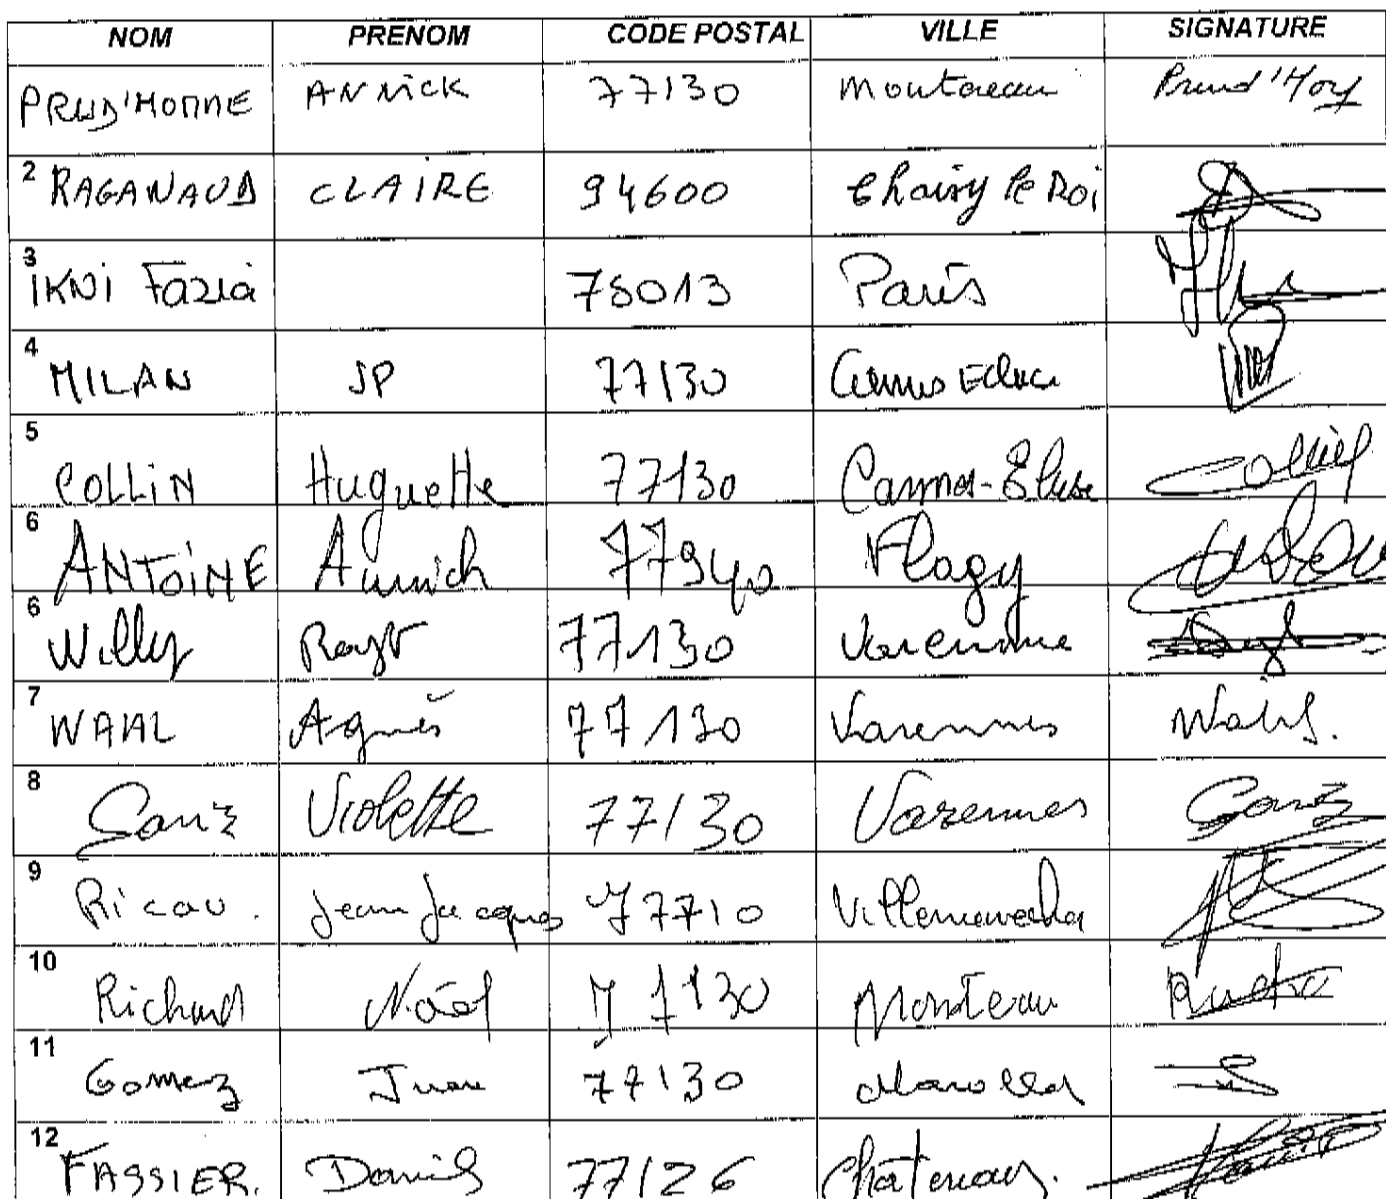 NOM PRENOM CODE POSTAL VILLE SIGNATURE
PRUD'HOMME ANNICK 77130 Montereau Prud'Hom
2 RAGANAUD CLAIRE 94600 Choisy le Roi
3 IKNI Fazia 75013 Paris
4 MILAN JP 77130 Cannes Ecluse
5 COLLIN Huguette 77130 Cannes-Ecluse Collin
6 ANTOINE Annick 77940 Flagy
6 Willy 77130 Varennes
7 WAHL Agnès 77130 Varennes Wahl.
8 Sanz Violette 77130 Varennes Sanz
9 Ricou. Jean Jacques 77710
10 Richard Noël 77130 Montereau
11 Gomez Juan 77130 Marolles
12 FASSIER. Daniel 77126 Châtenay.